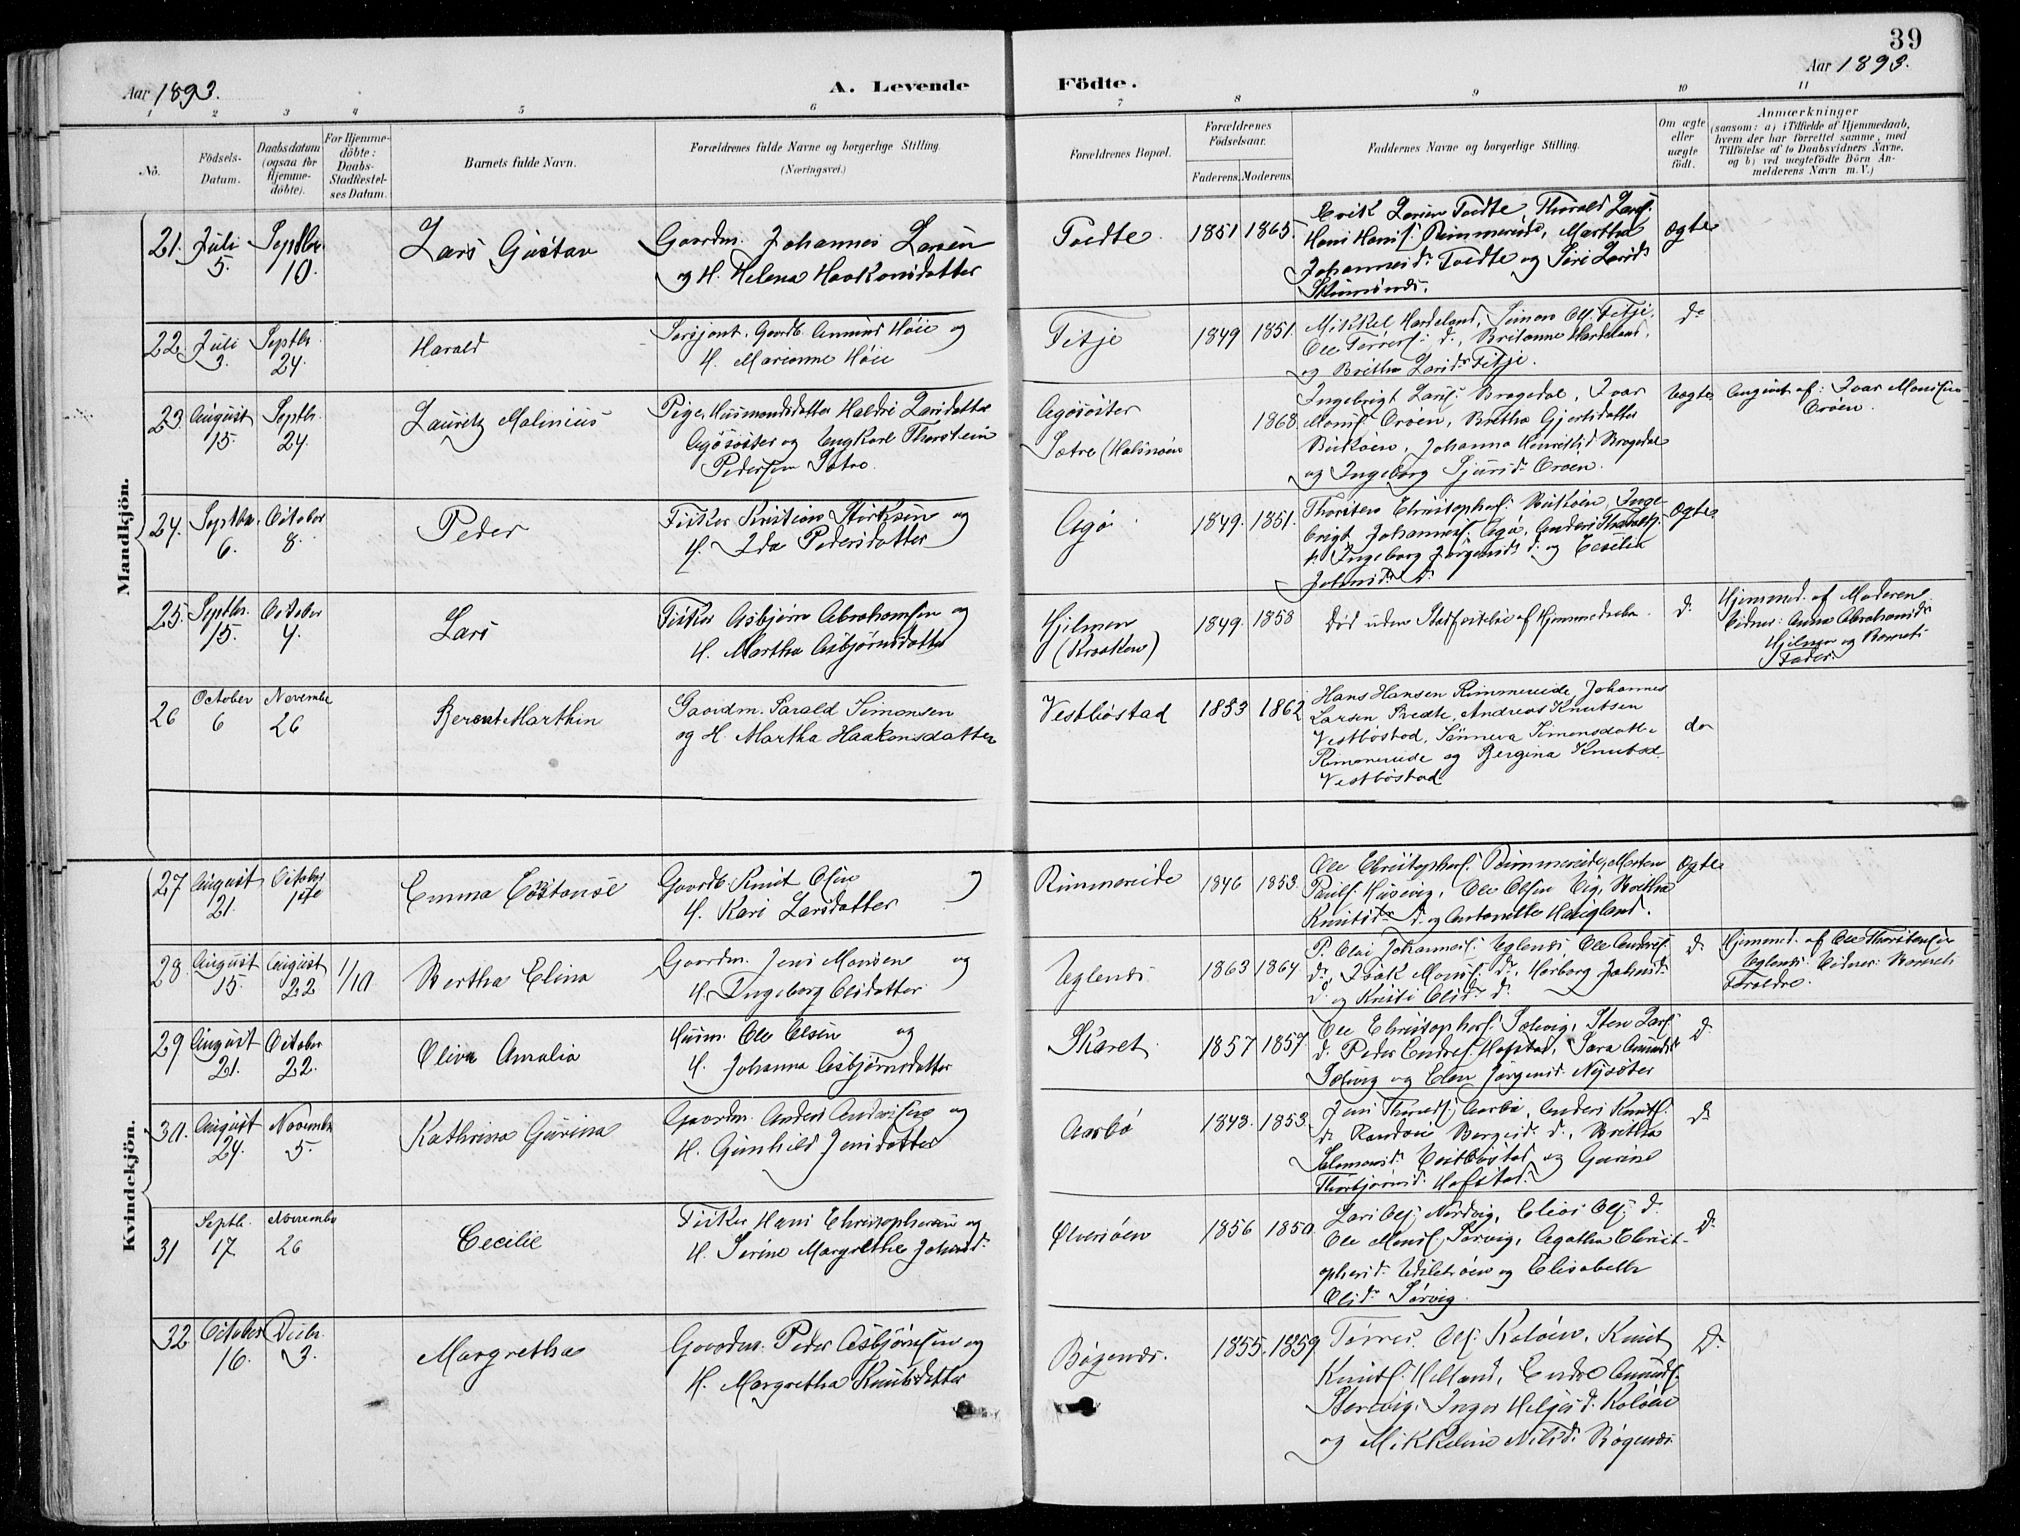 39
Aar 1893.
A. Levende
Födte.
Aar 1893.
1 2 3 4 5 6 7 8 9 10 11
No.
Födsels-
Datum.
Daabsdatum
(ogsaa for
Hjemme-
döbte).
For Hjemme-
döbte:
Daabs-
Stadfæstel-
ses Datum.
Barnets fulde Navn.
Forældrenes fulde Navne og borgerlige Stilling.
(Næringsvei.)
Forældrenes Bopæl.
Forældrenes
Födselsaar.
Faderens. Moderens.
Faddernes Navne og borgerlige Stilling.
Om ægte
eller
uægte
födt.
Anmærkninger
(saasom: a) i Tilfælde af Hjemmedaab,
hvem der har forrettet samme, med
Tilföielse af to Daabsvidners Navne,
og b) ved uægtefödte Börn An-
melderens Navn m. V.)
Mandkjön.
21. Juli
5.
Septbr.
10.
Lars Gustav
Gaardm. Johannes Larsen
og H. Helena Haakonsdatter
Tvedte
1851 1865.
Erik Larsen Tvedte, Thorald Larss.
Hans Hanss. Rimmereide, Martha
Johannesd. Tvedte og Siri Larsd.
ægte
22. Juli
3.
Septbr.
24.
Harald
Sersjant. Gaardb. Amund Höie og
H. Marianne Höie
Fitje
1849 1851.
Mikkel Hardeland, Simon Ols. Fitje,
Ole d., Britanne Hardeland,
og Britha Larsd. Fitje.
d.
23. August
15.
Septbr.
24.
Lauritz Malinius
Pige, Husmandsdatter Haldri Larsdatter
Agösæter og Ungkarl Thorstein
Pedersen Sætre.
Agösæter
Sætre (Halsnöen
1868.
Ingebrigt Larss. Bragedal, Ivar
Monss. Oröen, Britha Gjertsdatter
Buköen, Johanna Henriksd. Bragedal
og Ingeborg Sjursd. Oröen.
Uægte
Angivet af: Ivar Monssen
Oröen.
24. Septbr.
6.
October
8.
Peder
Fisker Kristian Störksen og
H. Ida Pedersdatter
Agö
1849. 1851.
Thorsten Christophers. Buköen, Inge-
brigt Johanness. Agö, Anders
Ingeborg Jörgensd. d. og Cecilia
Johnsd. d.
ægte
25. Septbr.
15.
October
4.
Lars
Fisker Asbjörn Abrahamsen og
H. Martha Asbjörnsdatter
Hjelmen
(Kraaken)
1849. 1858
Död uden Stadfæstelse af Hjemmedaaben
d.
Hjemmed. af Moderen
Vidner: Anna Abrahamsd.
Hjelmen og Barnets
Fader.
26 October
6
November
26
Berent Marthin
Gaardm. Harald Simonsen
og H. Martha Haakonsdatter
Vestböstad
1853 1862
Hans Hansen Rimmereide, Johannes
Larsen Tvedte, Andreas Knutsen
Vestböstad, Sönneva Simonsdatter
Rimmereide og Bergina Knutsd.
Vestböstad
do
Kvindekjön.
27 August
21.
October
1ste
Emma Costanse
Gaardb. Knut Olsen og
H. Kari Larsdatter
Rimmereide
1846 1853.
Ole Christophers. Rimmereide, Morten
Pauls. Husevig, Ole Olsen Vig, Britha
Knutsd. d. og Antonette Haugland.
ægte
28 August
15.
August
22
1/10
Bertha Elina
Gaardm. Jens Monsen og
H. Ingeborg Olsdatter
Uglenæs
1863 1864.
P. Olai Johanness. Uglenæs Ole Anders.
d., Isak Monss. d., Herborg Johnsd.
d. og Knuti Olsd. d.
d.
Hjemmed. af Ole Thorstensen
Uglenæs. Vidner: Barnets
Foraldre.
29 August
21.
October
22.
Oliva Amalia
Husm. Ole Olsen og
H. Johanna Asbjörnsdatter
Skaret
1857 1857.
Ole Christophers. Solvig, Sten Larss.
d. Peder Endres. Hofstad, Sara Amundsd.
Solvig og Elen Jörgensd. Nysæter
d.
30. August
24.
November
5.
Kathrina Gurina
Gaardm. Anders Andersen og
H. Gunhild Jensdatter
Aarbö
1848. 1853.
Jens Thoress. Aarbö, Anders Knuts.
d. Randvei Borgesd. d., Britha
Salomonsd. Vestböstad og Gurine
Thorbjörnsd. Hofstad.
d.
31
Septb.
17.
November
26
Cecilie
Fisker Hans Christophersen og
H. Serine Margrethe Johnsd.
Olversöen
1856 1850.
Lars Ols. Nordvig, Elias Ols. d.
Ole Monss. Sörvig, Agatha Christ-
ophersd. og Elisabeth
Olsd. Sörvig.
d.
32 October
16.
Decbr.
3.
Margretha
Gaardm. Peder Asbjörnsen og
H. Margretha Knutsdatter
Bögenæs.
1855. 1859
Torres Ols. Kolöen, Knut
Knuts. Helland, Endre Amunds.
Storvig, Inger Helgesd. Kolöen
og Mikkeline Nilsd. Bögenæs
d.